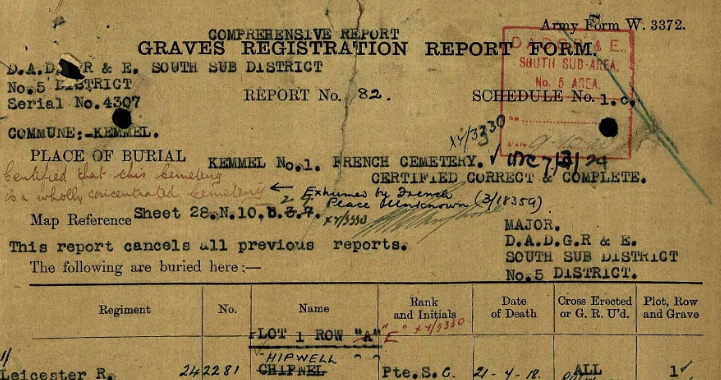 Army Form W. 3372.
COMPREHENSIVE REPORT
GRAVES REGISTRATION REPORT FORM.
D.A.D.G.R & E. SOUTH SUB DISTRICT
No.5 DISTRICT
Serial No.4307
REPORT No. 82.
SCHEDULE No. 1.c.
D.A.D.G.R & E.
SOUTH SUB-AREA,
No. 5 AREA.
COMMUNE:-KEMMEL.
xv/3330
PLACE OF BURIAL KEMMEL No.1. FRENCH CEMETERY.
CERTIFIED CORRECT & COMPLETE.
Certified that this Cemetery
is a wholly concentrated Cemetery
Exhumes by French
Place Unknown (3/18359)
Map Reference Sheet 28.N.10.
xv/3330
This report cancels all previous reports.
MAJOR.
D.A.D.G.R & E.
SOUTH SUB DISTRICT
No.5 DISTRICT.
The following are buried here:—
Regiment No. Name Rank and Initials Date of Death Cross Erected or G. R. U'd. Plot, Row and Grave
PLOT 1 ROW "A" "E" xv/3330
HIPWELL
Leicester R. 242281 CHIPNEL Pte.S.C. 21-4-18. ALL 1